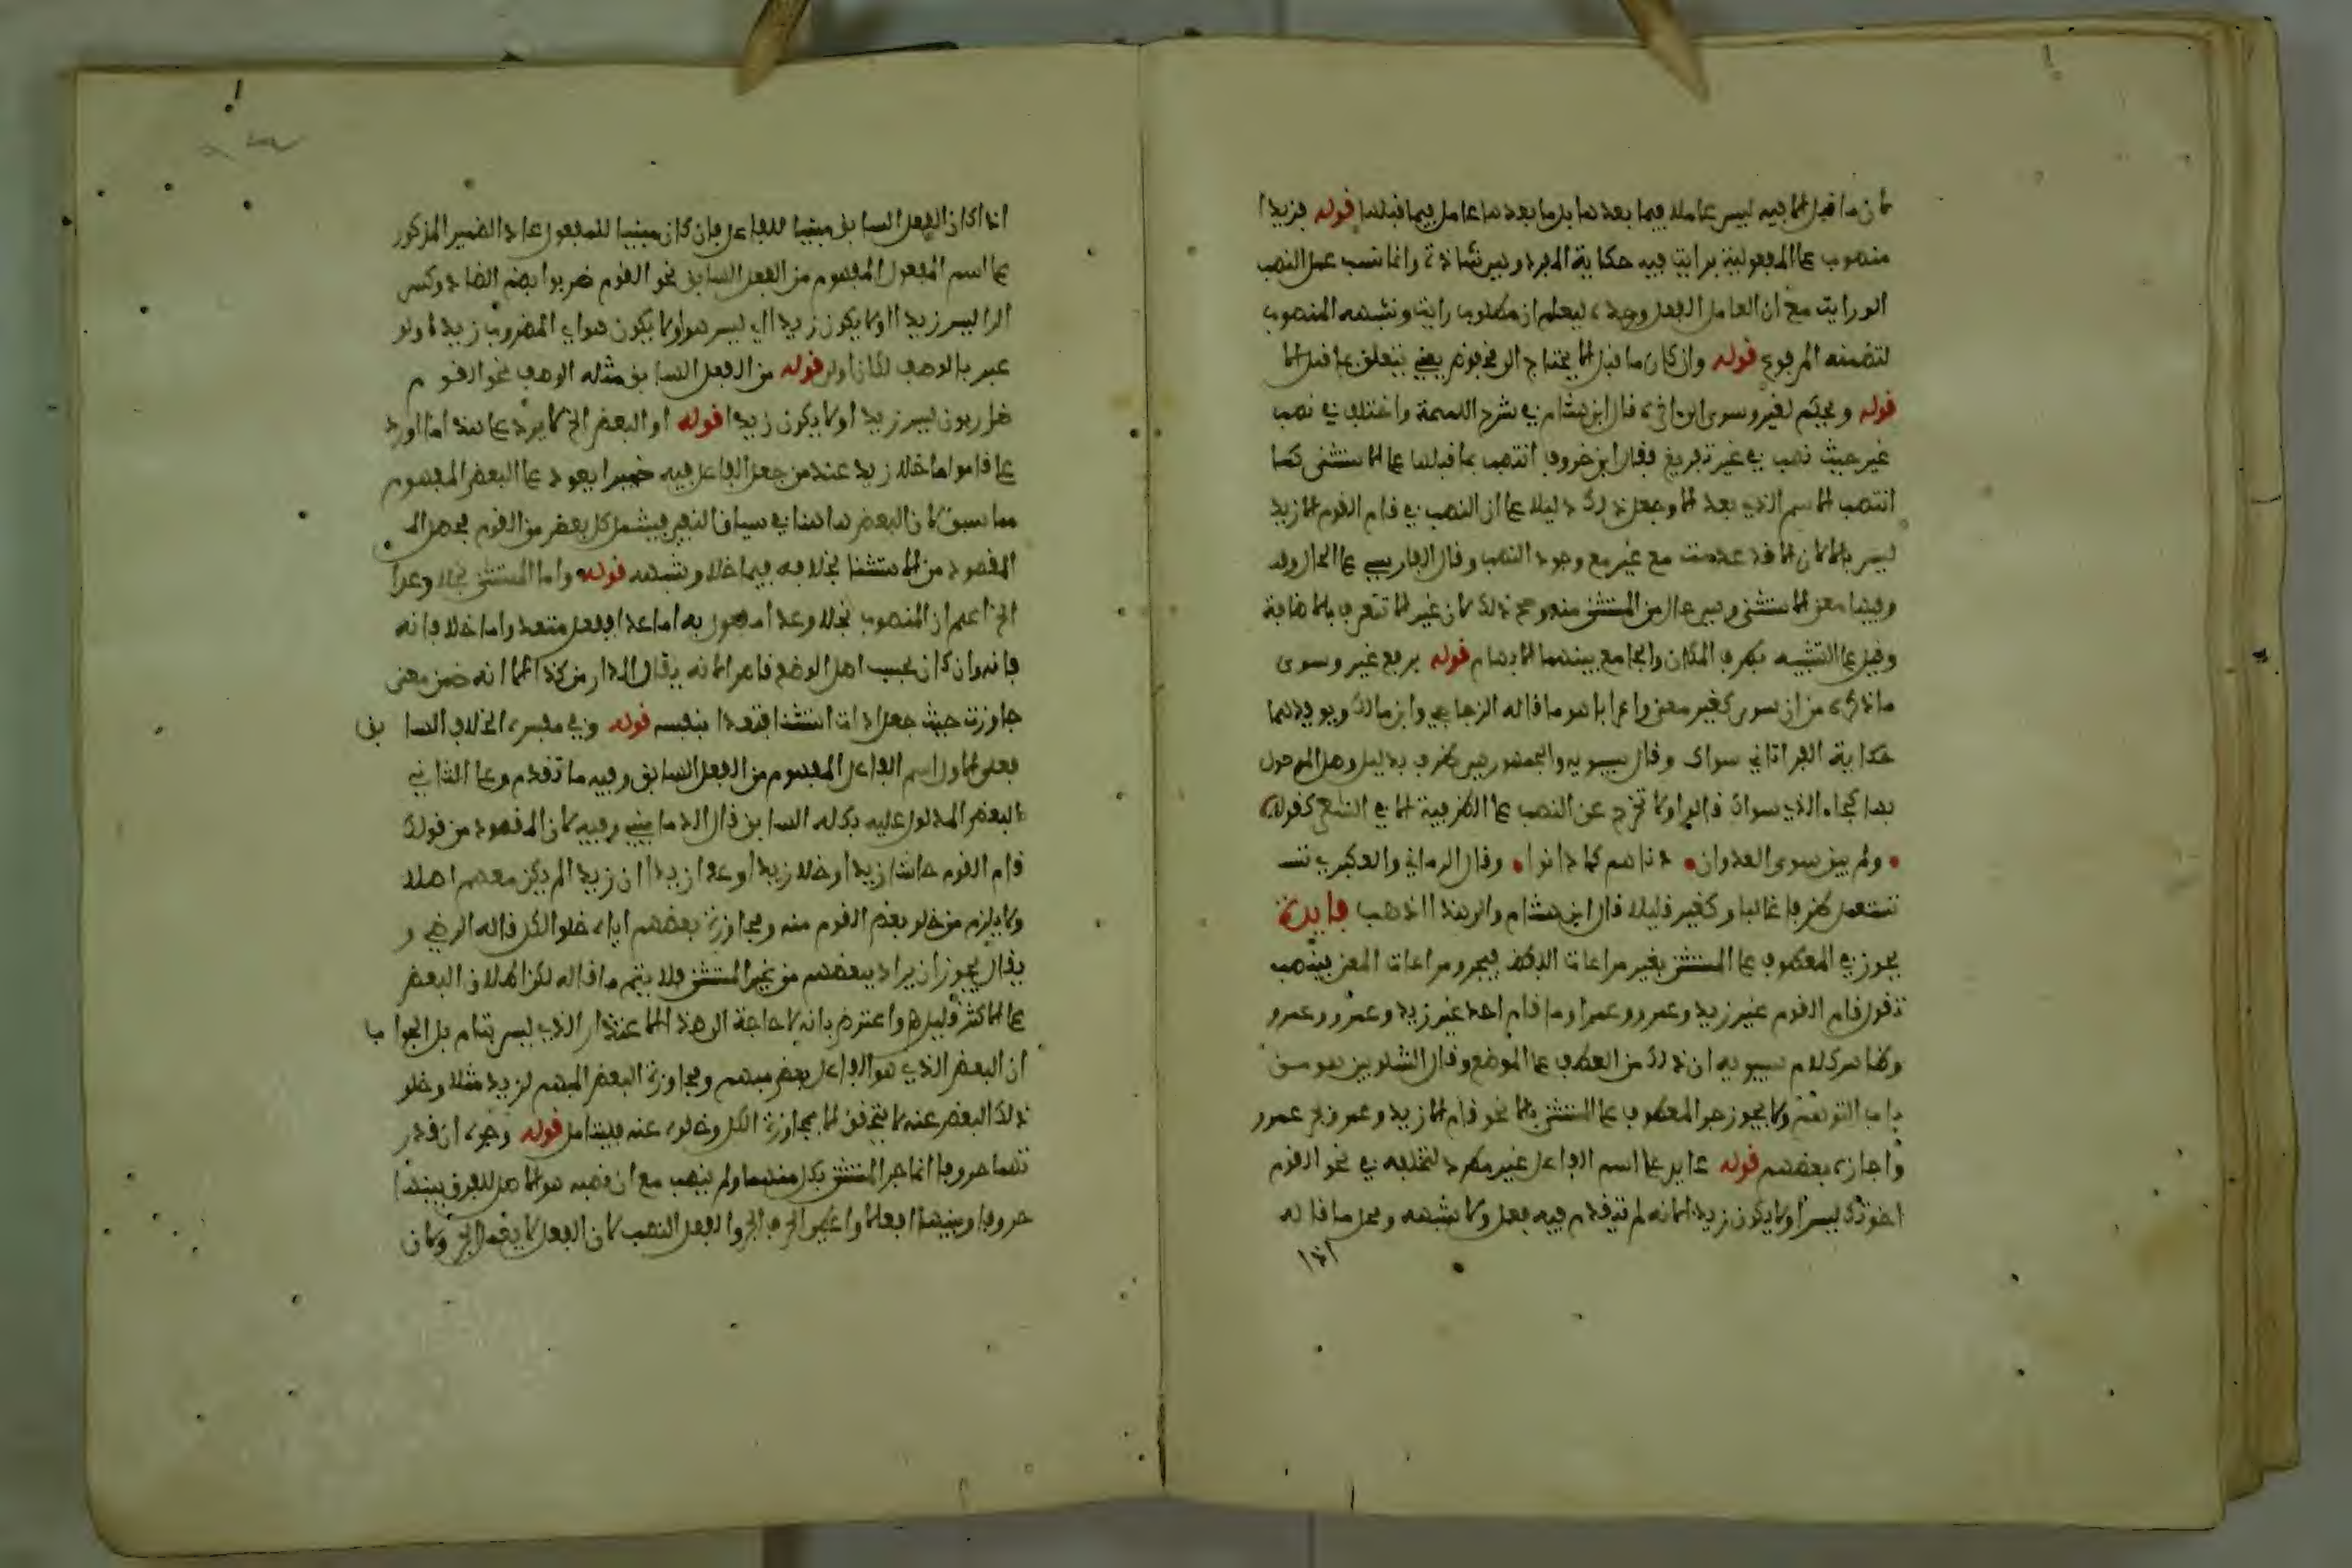 لان ما قبل الا فيه ليس عاملا فيما بعدها بل ما بعدها عامل فيما قبلها قوله فزيدا
منصوب على المفعولية برايت فيه حكاية المفرد وهي شاذة وانما نسب عمل النصب
الى رايت مع ان العامل الفعل وحده ليعلم ان مطلوب رايت ونشبهه المنصوب
لتضمنه المرفوع قوله وان كان ما قبل الا يحتاج الى مخفوض يعني يتعلق بما قبل الا
قوله ويحكم لغير وسوى الى اخره قال ابن هشام في شرح اللمحة واختلف في نصب
غير حيث نصب في غير تفريغ فقال ابن خروف انتصب بما قبلها على الاستثنى كما
انتصب الاسم الذي بعد الا وجعل ذلك دليلا على ان النصب في قام القوم الا زيد
ليس بالا لان الا قد عدمت مع غير مع وجود النصب وقال الفارسي على الحال وقد
وفيها معنى الاستثنى وهي حال من المستثنى منه وصح ذلك لان غير لا تتعرف بالاضافة
وقيل على التشبيه بظرف المكان والجامع بينهما الابهام قوله برفع غير وسوى
ما ذكره من ان سوى كغير معنى واعرابا هو ما قاله الزجاجي وابن مالك ويويدهما
حكاية الفرا اتاني سواك وقال سيبويه والجمهور هي ظرف بدليل وصل الموصول
بها كجاء الذي سواك قالوا ولا تخرج عن النصب على الظرفية الا في الشعر كقوله
ولم يبق سوى العدوان دناهم كما دانوا وقال الرماني والعكبري تستـ
تستعمل ظرفا غالبا وكغير قليلا قال ابن هشام والى هذا اذهب فايدة
يجوز في المعطوف على المستثنى بغير مراعات اللفظ فيجر ومراعات المعنى فينصب
تقول قام القوم غير زيد وعمرو وعمرا وما قام احد غير زيد وعمرو وعمرو
وظاهر كلام سيبويه ان ذلك من العطف على الموضع وقال الشلوبين هو من
باب التوهم ولا يجوز جر المعطوف على المستثنى بالا نحو قام الا زيد وعمرو
واجازه بعضهم قوله عايد على اسم الفاعل غير مطرد لتخلفه في نحو القوم
اخوتك ليس او لا يكون زيدا لانه لم يتقدم فيه فعل ولا شبهه ومحل ما قاله
اذا
اذا كان الفعل السابق مبنيا للفاعل فان كان مبنيا للمفعول عاد الضمير المذكور
على اسم المفعول المفهوم من الفعل السابق نحو القوم ضربوا بضم الضاد وكسر
الرا ليس زيدا او لا يكون زيدا اي ليس هو او لا يكون هو اي المضروب زيدا ولو
عبر بالوصف لكان اولى قوله من الفعل السابق مثله الوصف نحو القوم
ضاربون ليس زيد او لا يكون زيدا قوله او البعض الخ لا يرد على هذا ما اورد
على قاموا ما خلا زيد عند من جعل الفاعل فيه ضميرا يعود على البعض المفهوم
مما سبق لان البعض هاهنا في سياق النفي فيشمل كل بعض من القوم فحصل الـ
المقصود من الاستثنا بخلافه فيما خلا وشبهه قوله واما المستثنى بخلا وعدا
الخ اعلم ان المنصوب بخلا وعدا مفعول به اما عدا ففعل متعد واما خلا فانه
فانه وان كان بحسب اصل الوضع قاصر الانه يقال الدار من كذا الا انه ضمن معنى
جاوزت حيث جعل اداة استثنا فتعدا بنفسه قوله وفي مفسره الخلاف السابق
فعلى الاول اسم الفاعل المفهوم من الفعل السابق وفيه ما تقدم وعلى الثاني
البعض المدلول عليه بكله السابق قال الدماميني وفيه لان المقصود من قولك
قام القوم حاشا زيدا وخلا زيدا وعدا زيدا ان زيدا لم يكن معهم اصلا
ولا يلزم من خلو بعض القوم منه ومجاوزة بعضهم اياه خلو الكل قاله الرضي و
يقال يجوز ان يراد ببعضهم من غير المستثنى فلا يتم ما قاله لكن اطلاق البعض
على الاكثر قليل واعترض بانه لا حاجة الى هذا الاعتذار الذي ليس بتام بل الجواب
ان البعض الذي هو الفاعل بعض مبهم ومجاوزة البعض المبهم لزيد مثلا وخلو
ذلك البعض عنه لا يتحقق الا بمجاوزة الكل وخلوه عنه فليتامل قوله وجره ان قدر
تهما حروفا انما جر المستثنى بكل منهما ولم ينصب مع ان نصبه هو الاصل للفرق بينها
حروفا وبينها افعالا واعطي الحرف الجر والفعل النصب لان الفعل لا يعمل الجر ولان